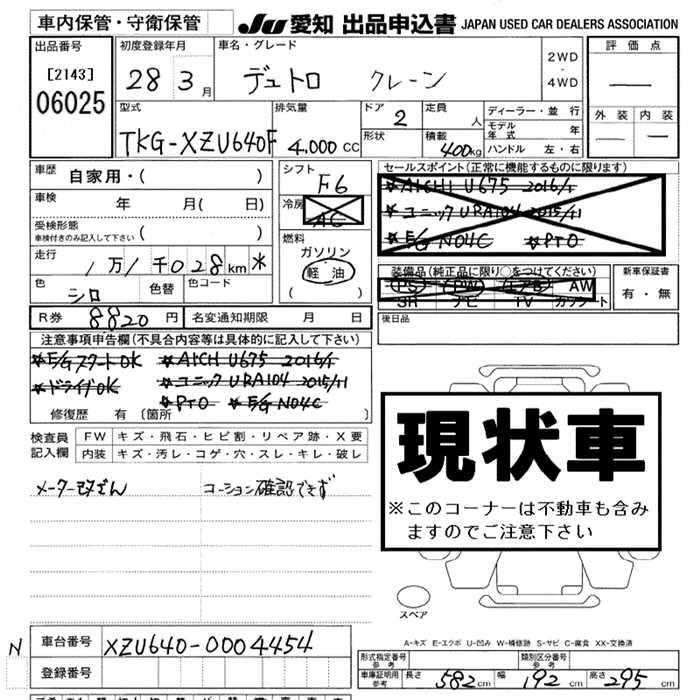 車内保管・守衛保管
JU 愛知 出品申込書 JAPAN USED CAR DEALERS ASSOCIATION
出品番号
[2143]
06025
初度登録年月
28 3月
車名・グレード
デュトロ クレーン
2WD
・
4WD
評価点
型式
TKG-XZU640F
排気量
4.000 CC
ドア
2
形状
定員
人
積載
400kg
ディーラー・並 行
モデル年式 年
ハンドル 左・右
外装 内装
車歴
自家用・( )
車検
年 月( 日)
受検形態
車検付きのみ記入して下さい ( )
走行
1万1千028km *
色
シロ
色替
色コード
R券 8820円
名変通知期限 月 日
シフト
F6
冷房
AC
燃料
ガソリン
軽油
( )
セールスポイント(正常に機能するものに限ります)
☆AICHI U675 2016/1
☆ユニック URA104 2015/11
☆E/G N04C ☆PTO
装備品(純正品に限り○をつけてください)
PS PW エアB AW
SR ナビ TV カワシート
新車保証書
有・無
後日品
注意事項申告欄(不具合内容等は具体的に記入して下さい)
☆E/GスタートOK ☆AICH U675 2016/1
☆ドライブOK ☆ユニック URA104 2015/11
☆PTO ☆E/G N04C
修復歴 有 〔箇所 〕
検査員記入欄
FW キズ・飛石・ヒビ割・リペア跡・X要
内装 キズ・汚レ・コゲ・穴・スレ・キレ・破レ
メーター改ざん コーション確認できず
現状車
※このコーナーは不動車も含み
ますのでご注意下さい
スペア
A-キズ E-エクボ U-凹み W-補修跡 S-サビ C-腐食 XX-交換済
N 車台番号 XZU640-0004454
登録番号
形式指定番号 参考
類別区分番号 参考
車庫証明用 参考 長さ 582cm 幅 192cm 高さ 295cm